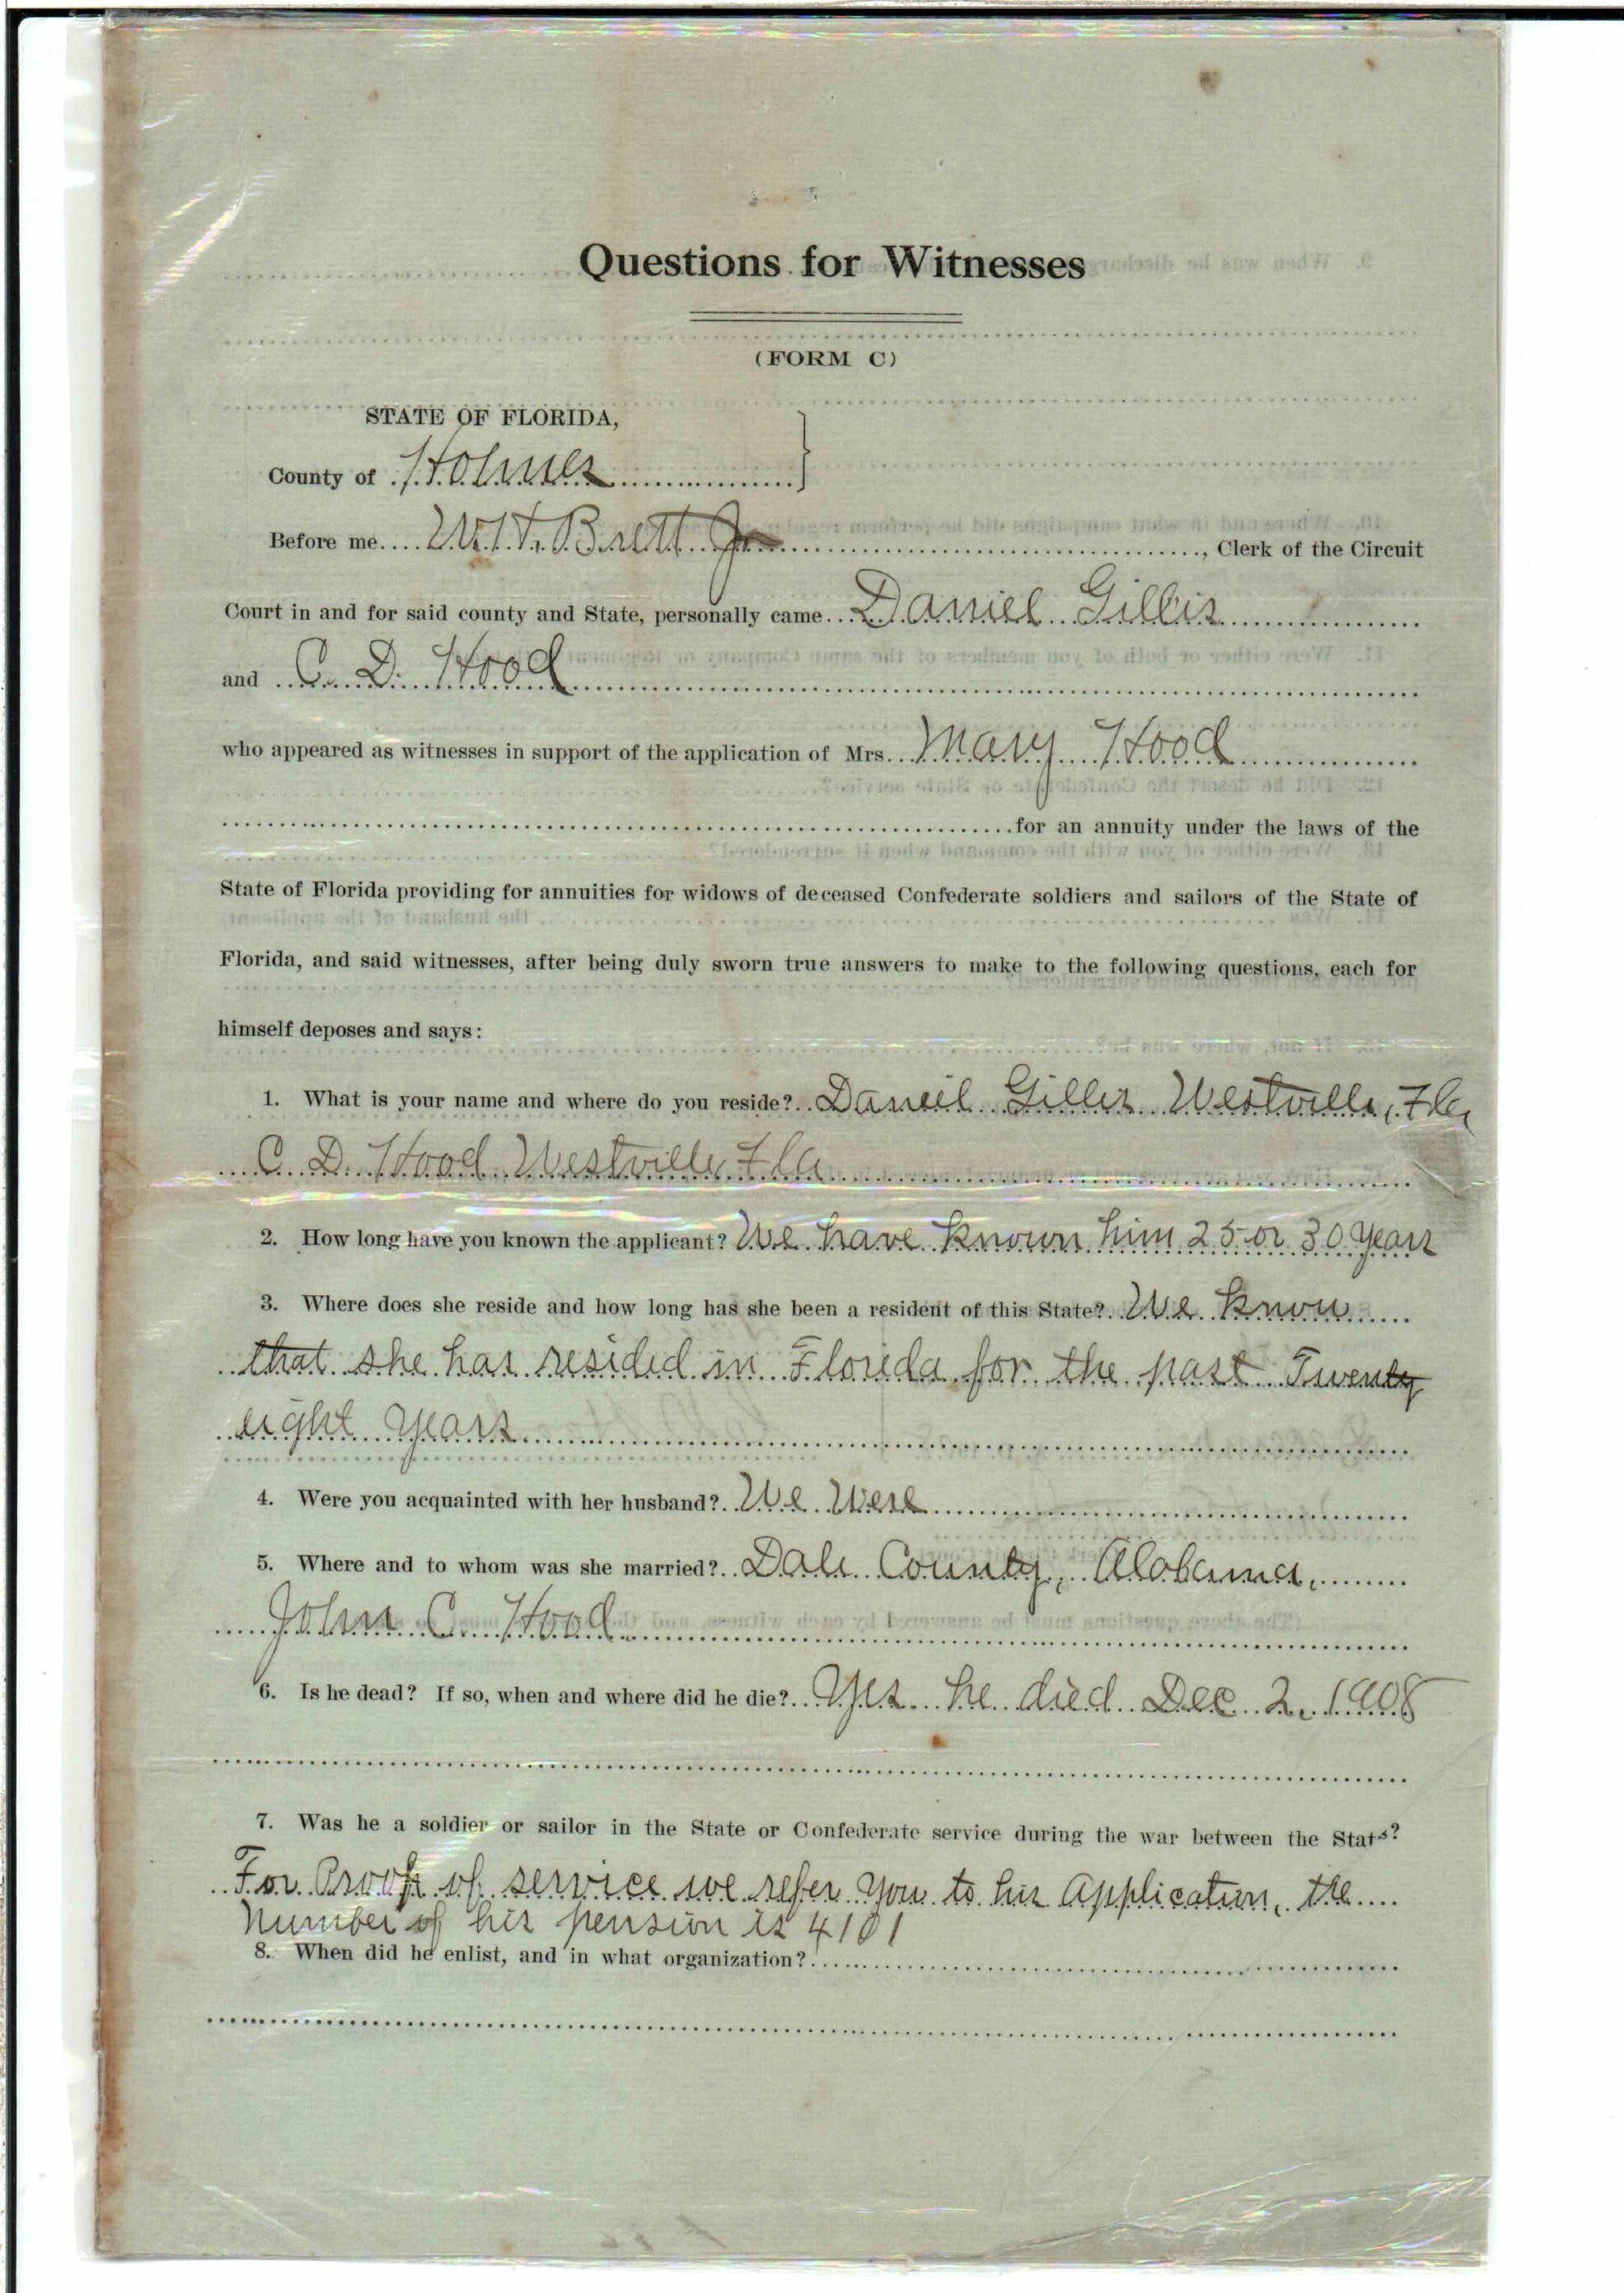 Questions for Witnesses
(FORM C)
STATE OF FLORIDA,
County of Holmes
Before me W. H. Brett Jr , Clerk of the Circuit
Court in and for said county and State, personally came Daniel Gillis
and C. D. Hood
who appeared as witnesses in support of the application of Mrs. Mary Hood
for an annuity under the laws of the
State of Florida providing for annuities for widows of deceased Confederate soldiers and sailors of the State of
Florida, and said witnesses, after being duly sworn true answers to make to the following questions, each for
himself deposes and says:
1. What is your name and where do you reside? Daniel Gillis Westville, Fla
C. D. Hood Westville, Fla
2. How long have you known the applicant? We have known him 25 or 30 years
3. Where does she reside and how long has she been a resident of this State? We know
that she has resided in Florida for the past Twenty
eight years
4. Were you acquainted with her husband? We Were
5. Where and to whom was she married? Dale County, Alabama,
John C. Hood
6. Is he dead? If so, when and where did he die? Yes he died Dec 2, 1908
7. Was he a soldier or sailor in the State or Confederate service during the war between the Stats?
For Proof of service we refer you to his Application, the
Number of his pension is 4101
8. When did he enlist, and in what organization?